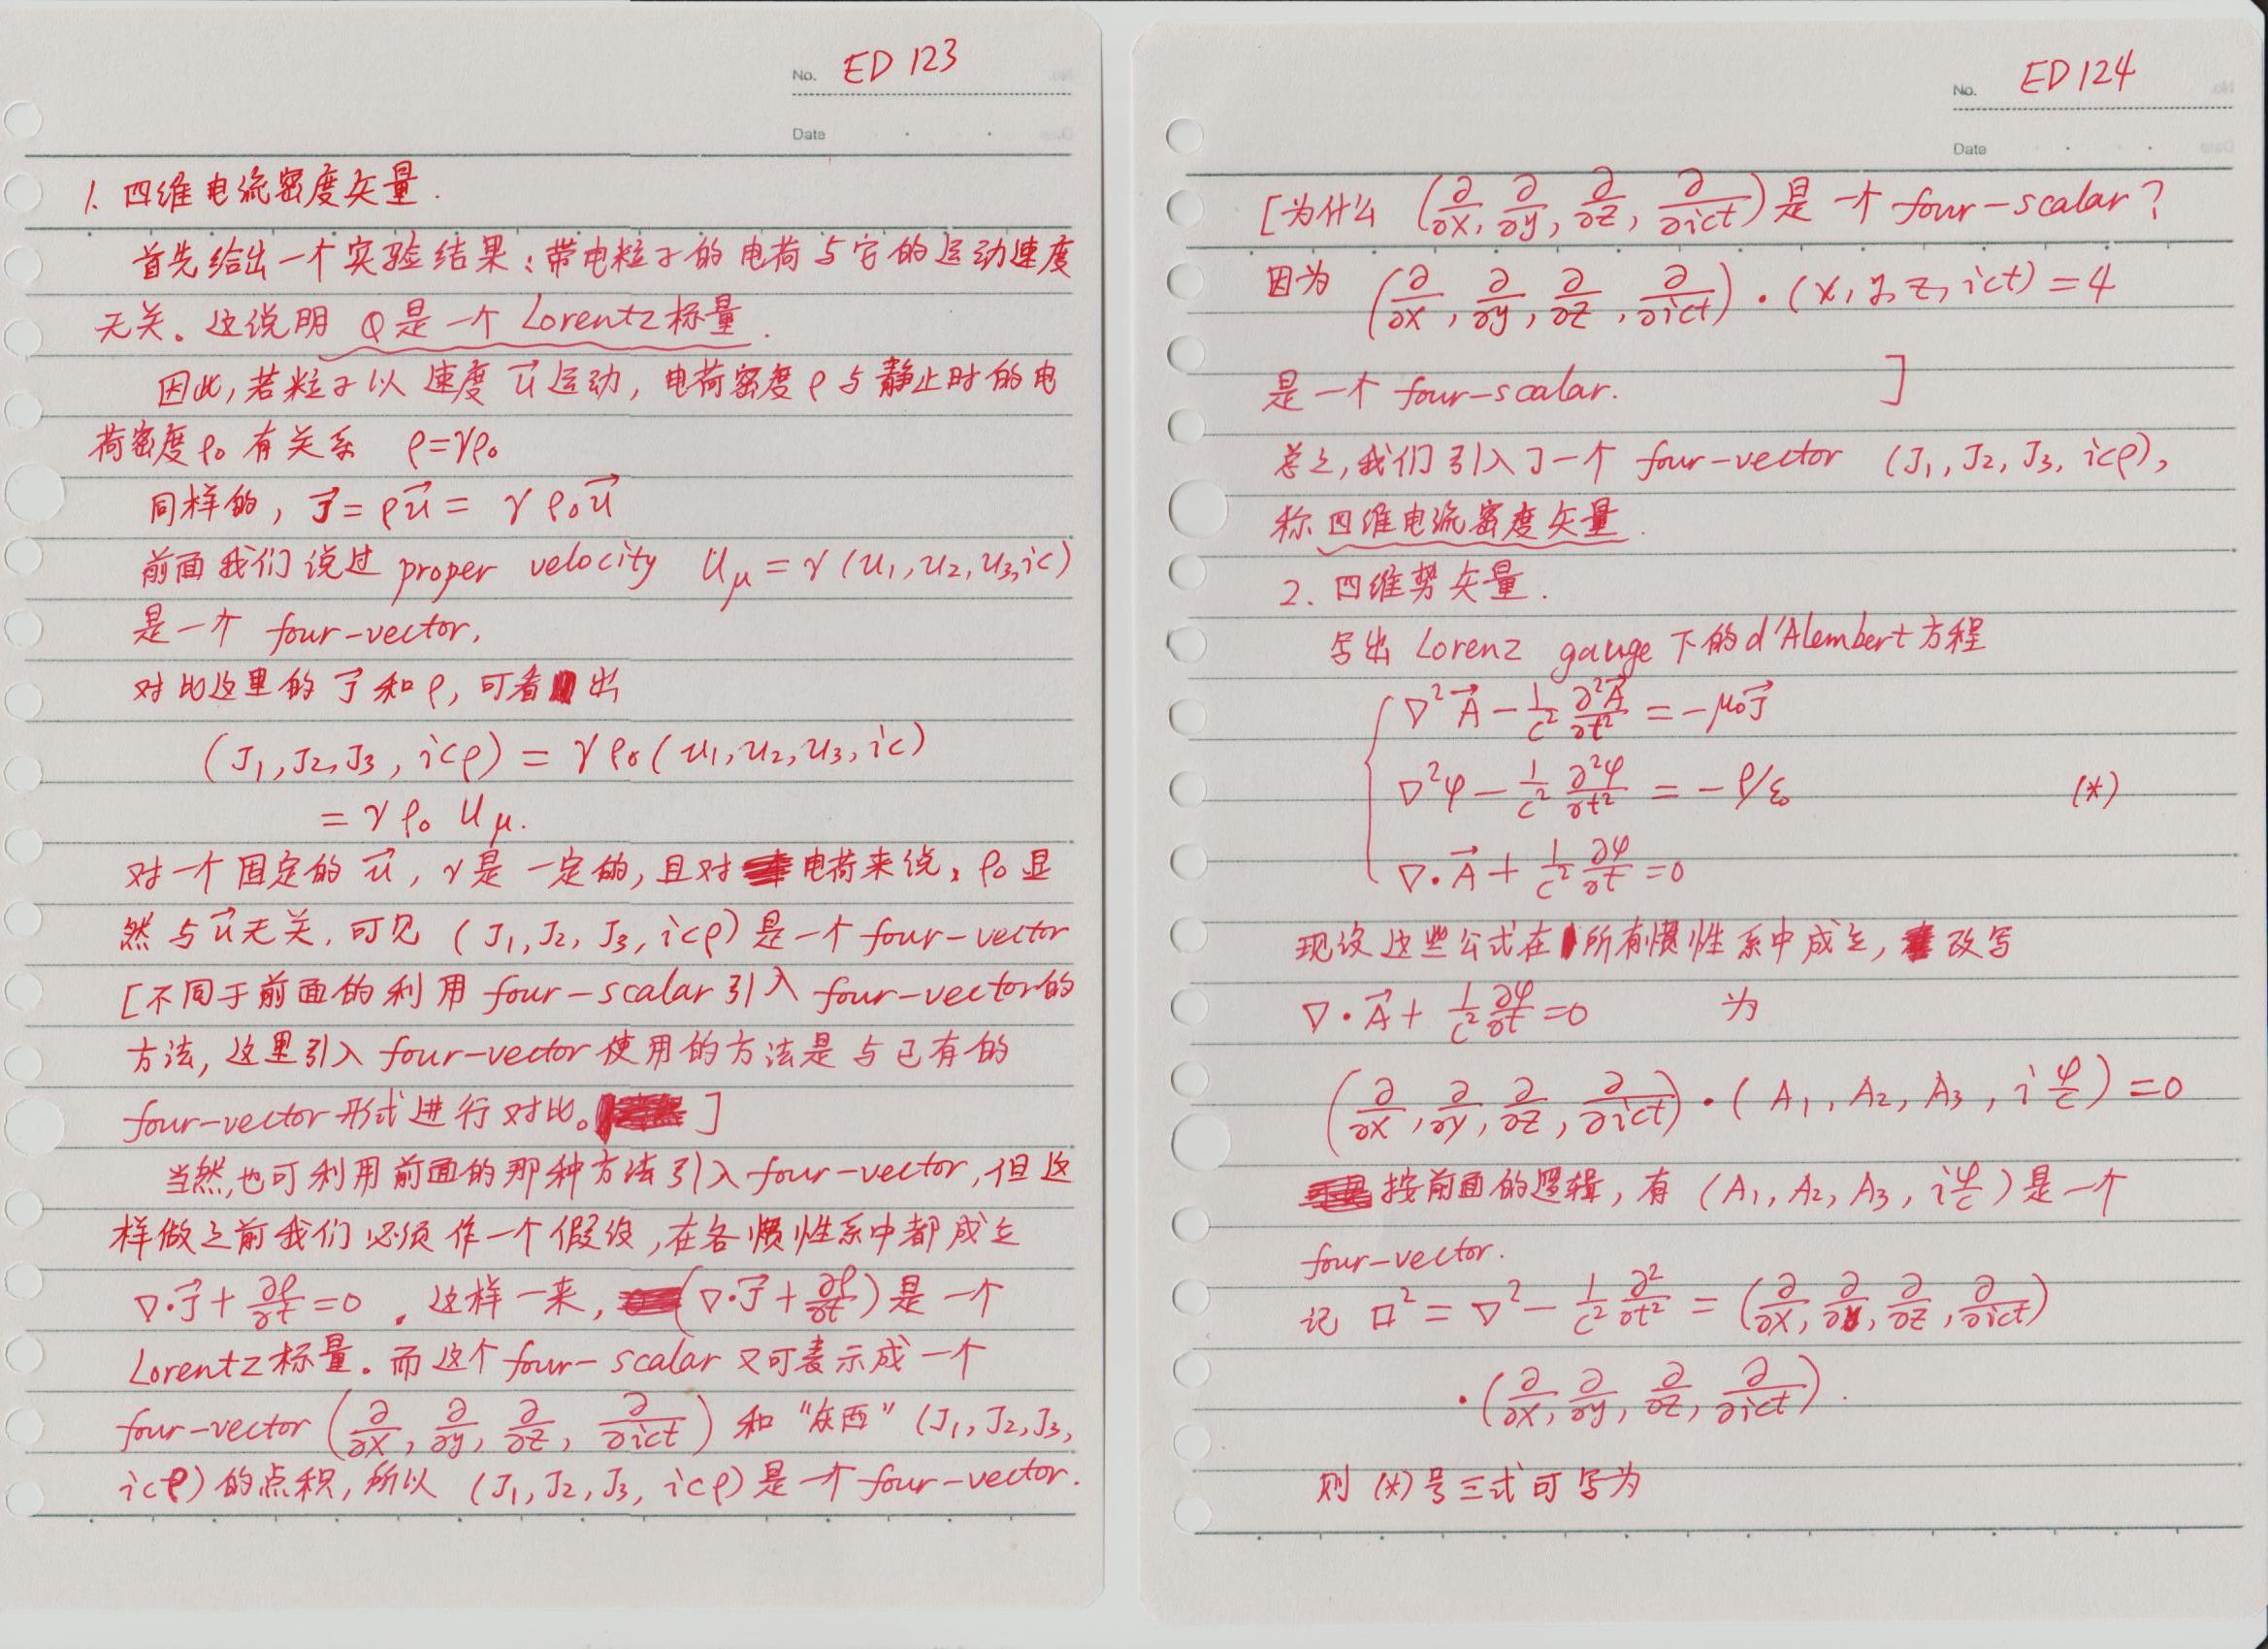 No. ED 123
Date
1. 四维电流密度矢量.
首先给出一个实验结果:带电粒子的电荷与它的运动速度
无关。这说明 Q是一个 Lorentz标量.
因此,若粒子以 速度 u⃗ 运动,电荷密度 ρ 与静止时的电
荷密度 ρ₀ 有关系 ρ=γρ₀
同样的, J⃗ = ρu⃗ = γ ρ₀u⃗
前面我们说过 proper velocity U_μ = γ (u₁, u₂, u₃, ic)
是一个 four-vector,
对比这里的 J⃗ 和 ρ, 可看出
(J₁, J₂, J₃, icρ) = γ ρ₀ (u₁, u₂, u₃, ic)
= γ ρ₀ U_μ.
对一个固定的 u⃗, γ是一定的,且对电荷来说, ρ₀显
然与u⃗无关. 可见 (J₁, J₂, J₃, icρ) 是一个 four-vector
[不同于前面的利用 four-scalar 引入 four-vector的
方法, 这里引入 four-vector 使用的方法是与已有的
four-vector 形式进行对比。]
当然,也可利用前面的那种方法引入four-vector,但这
样做之前我们必须作一个假设,在各惯性系中都成立
∇·J⃗ + ∂ρ/∂t = 0 . 这样一来, (∇·J⃗ + ∂ρ/∂t) 是一个
Lorentz标量。而这个four-scalar 又可表示成一个
four-vector (∂/∂x, ∂/∂y, ∂/∂z, ∂/∂ict) 和 "东西" (J₁, J₂, J₃,
icρ) 的点积, 所以 (J₁, J₂, J₃, icρ) 是一个 four-vector.
No. ED 124
Date
[为什么 (∂/∂x, ∂/∂y, ∂/∂z, ∂/∂ict) 是一个 four-scalar?
因为 (∂/∂x, ∂/∂y, ∂/∂z, ∂/∂ict) · (x, y, z, ict) = 4
是一个 four-scalar. ]
总之,我们引入了一个 four-vector (J₁, J₂, J₃, icρ),
称四维电流密度矢量.
2. 四维势矢量.
写出 Lorenz gauge 下的 d'Alembert方程
∇²A⃗ − 1/c² ∂²A⃗/∂t² = −μ₀J⃗
∇²φ − 1/c² ∂²φ/∂t² = −ρ/ε₀ (*)
∇·A⃗ + 1/c² ∂φ/∂t = 0
现设这些公式在所有惯性系中成立, 改写
∇·A⃗ + 1/c² ∂φ/∂t = 0 为
(∂/∂x, ∂/∂y, ∂/∂z, ∂/∂ict) · (A₁, A₂, A₃, i φ/c) = 0
按前面的逻辑, 有 (A₁, A₂, A₃, i φ/c) 是一个
four-vector.
记 □² = ∇² − 1/c² ∂²/∂t² = (∂/∂x, ∂/∂y, ∂/∂z, ∂/∂ict)
· (∂/∂x, ∂/∂y, ∂/∂z, ∂/∂ict) .
则 (*) 号三式可写为